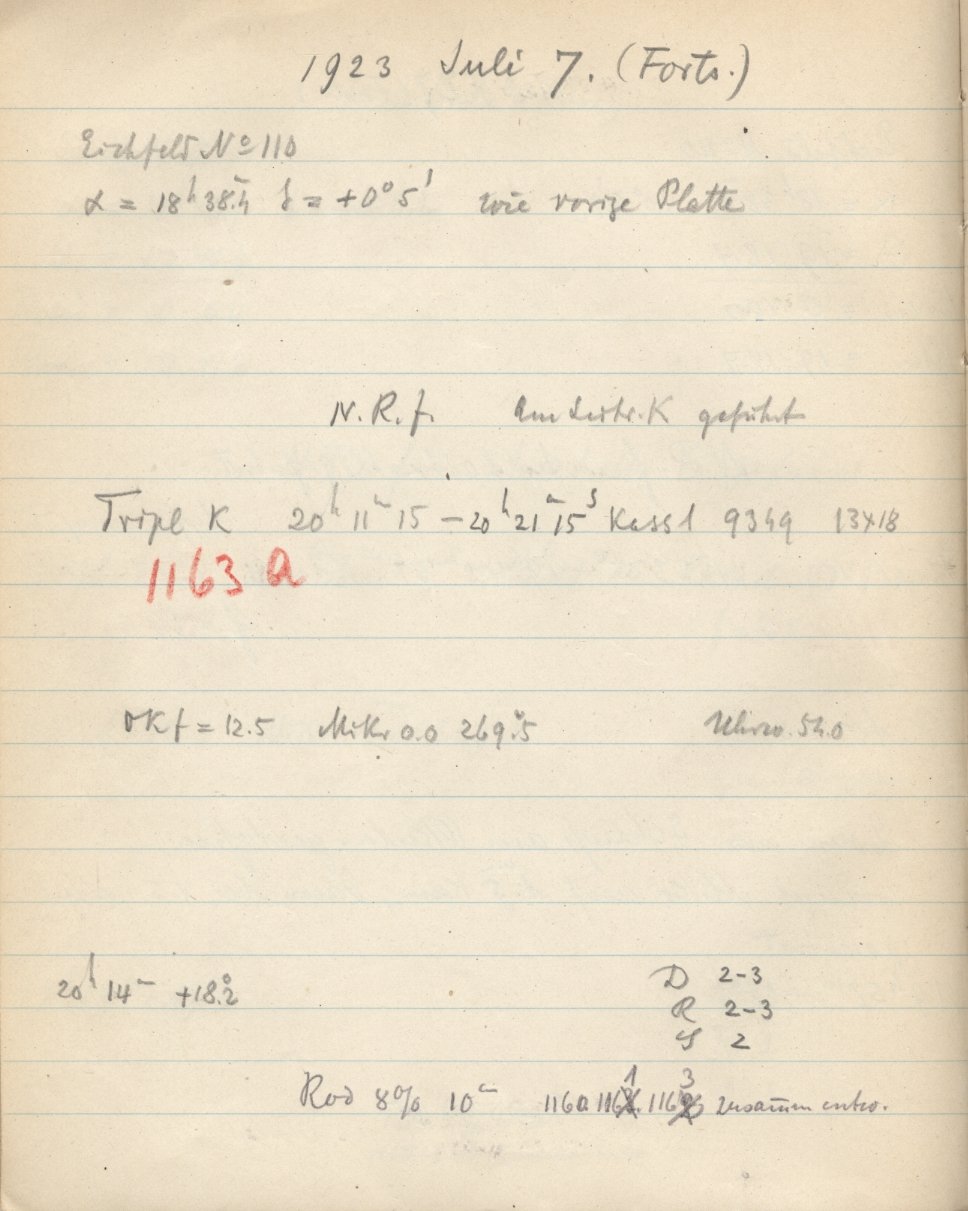 1923 Juli 7. (Forts.)
Eichfeld No 110
α = 18h 38.m4 δ = +0° 5' wie vorige Platte
N. R. f. Am Leitr. K geführt
Tripl K 20h 11m 15 – 20h 21m 15s Kass 1 9349 13×18
1163 a
OKf = 12.5 Mikr 0.0 269.5 Uhrw. 54.0
20h 14m +18.°2
D 2-3
R 2-3
S 2
Rod 8% 10m 1160 1161 1163 zusammen entw.